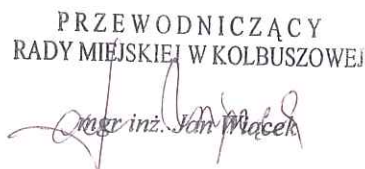 PRZEWODNICZĄCY
RADY MIEJSKIEJ W KOLBUSZOWEJ
mgr inż. Jan Wiącek